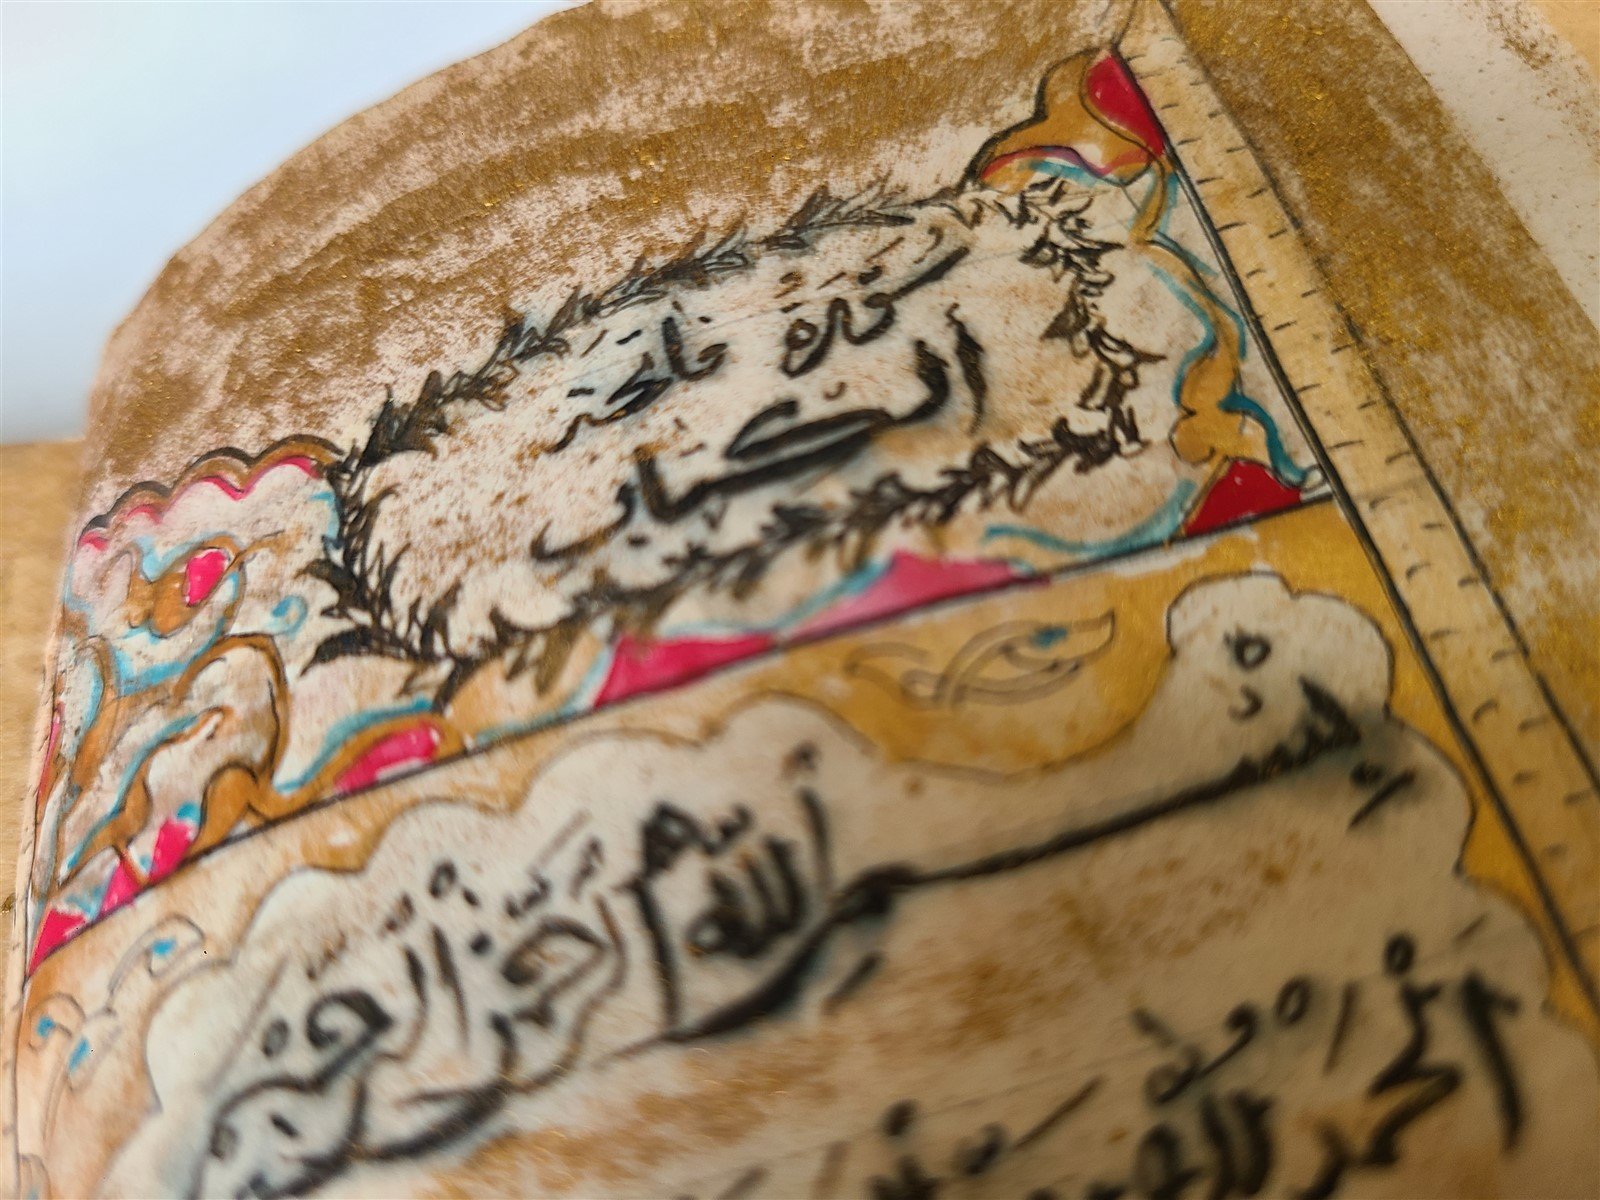 سُورَةُ فَاتِحَة
الْكِتَاب
بِسْمِ اللَّهِ الرَّحْمَٰنِ الرَّحِيمِ
الْحَمْدُ لِلَّهِ